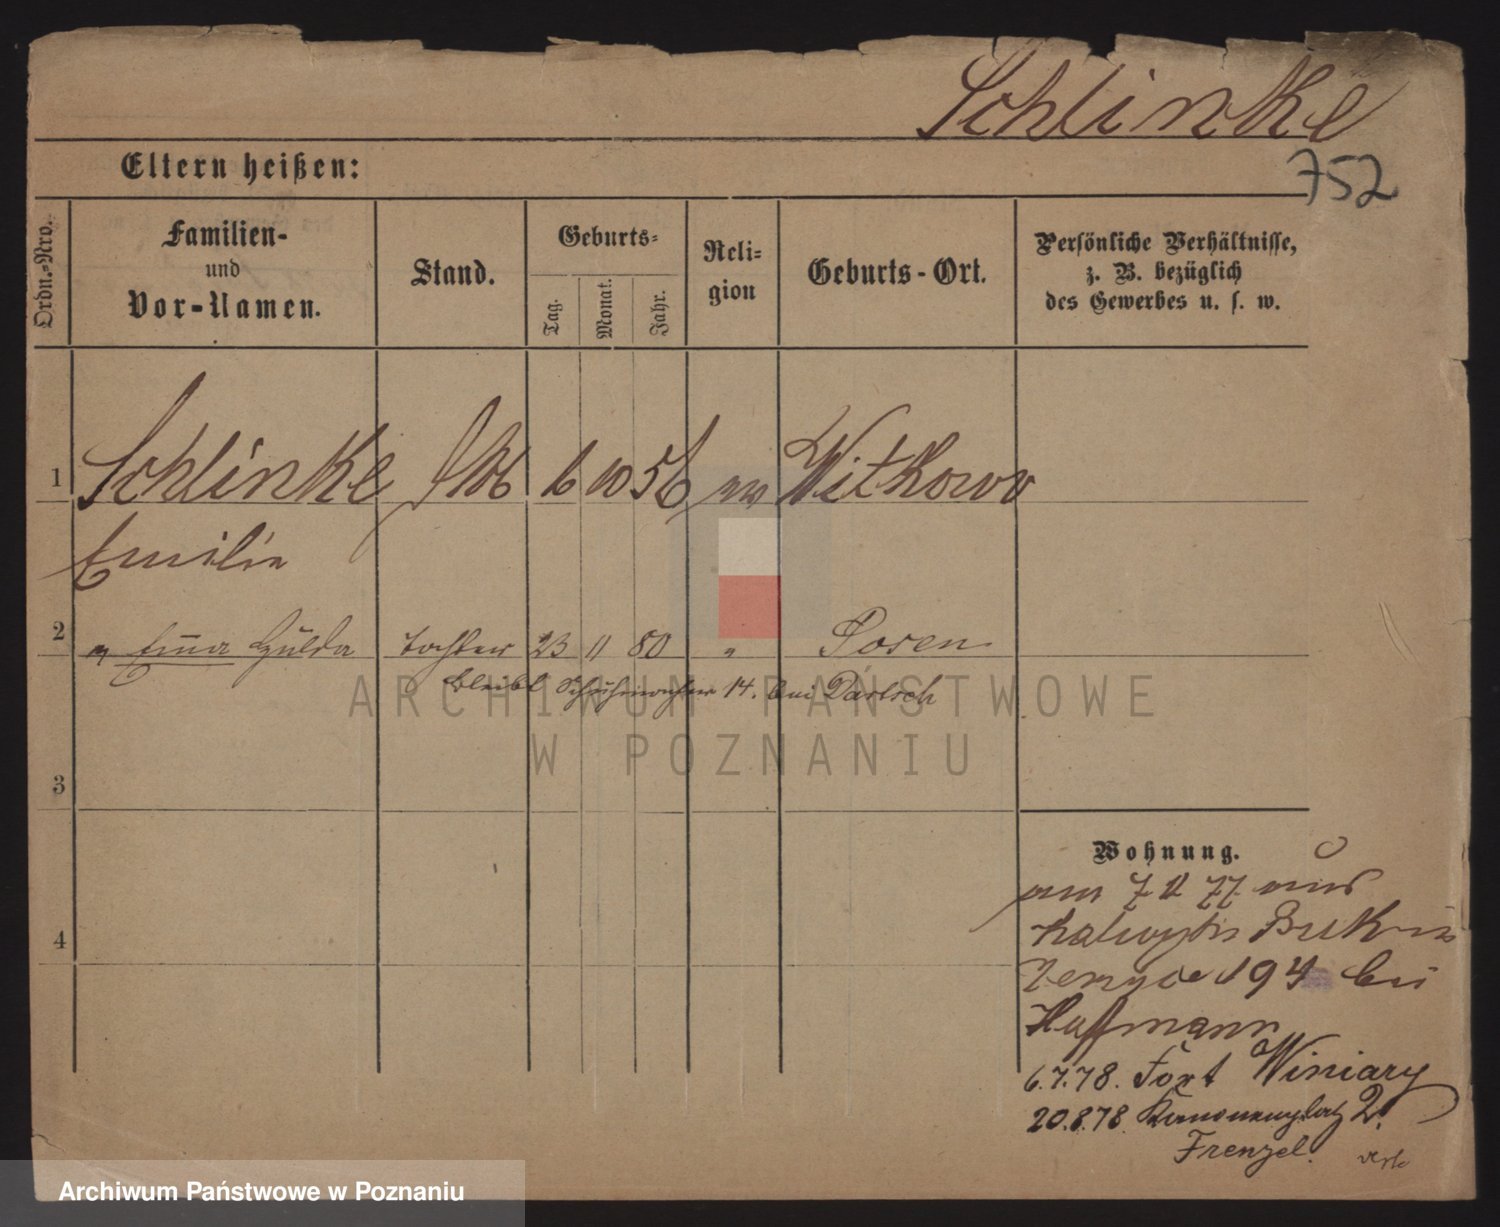 Schlinke
752
Eltern heißen:
Ordn.-Nro.
Familien-
und
Vor-Namen.
Stand.
Geburts-
Tag.
Monat.
Jahr.
Reli-
gion
Geburts-Ort.
Persönliche Verhältnisse,
z. B. bezüglich
des Gewerbes u. s. w.
1 Schlinke 6 10 56 ev Witkowo
Emilie
2 " Emma Hulda Tochter 23 11 80 " Posen
bleibt 14. bei Bartsch
ARCHIWUM PAŃSTWOWE
W POZNANIU
3
4
Wohnung.
am 7 11 77 aus
Buk in
Jerzyce 194 bei
Hoffmann
6.7.78. Fort Winiary
20.8.78. Kanonenplatz 2.
Frenzel.
Archiwum Państwowe w Poznaniu